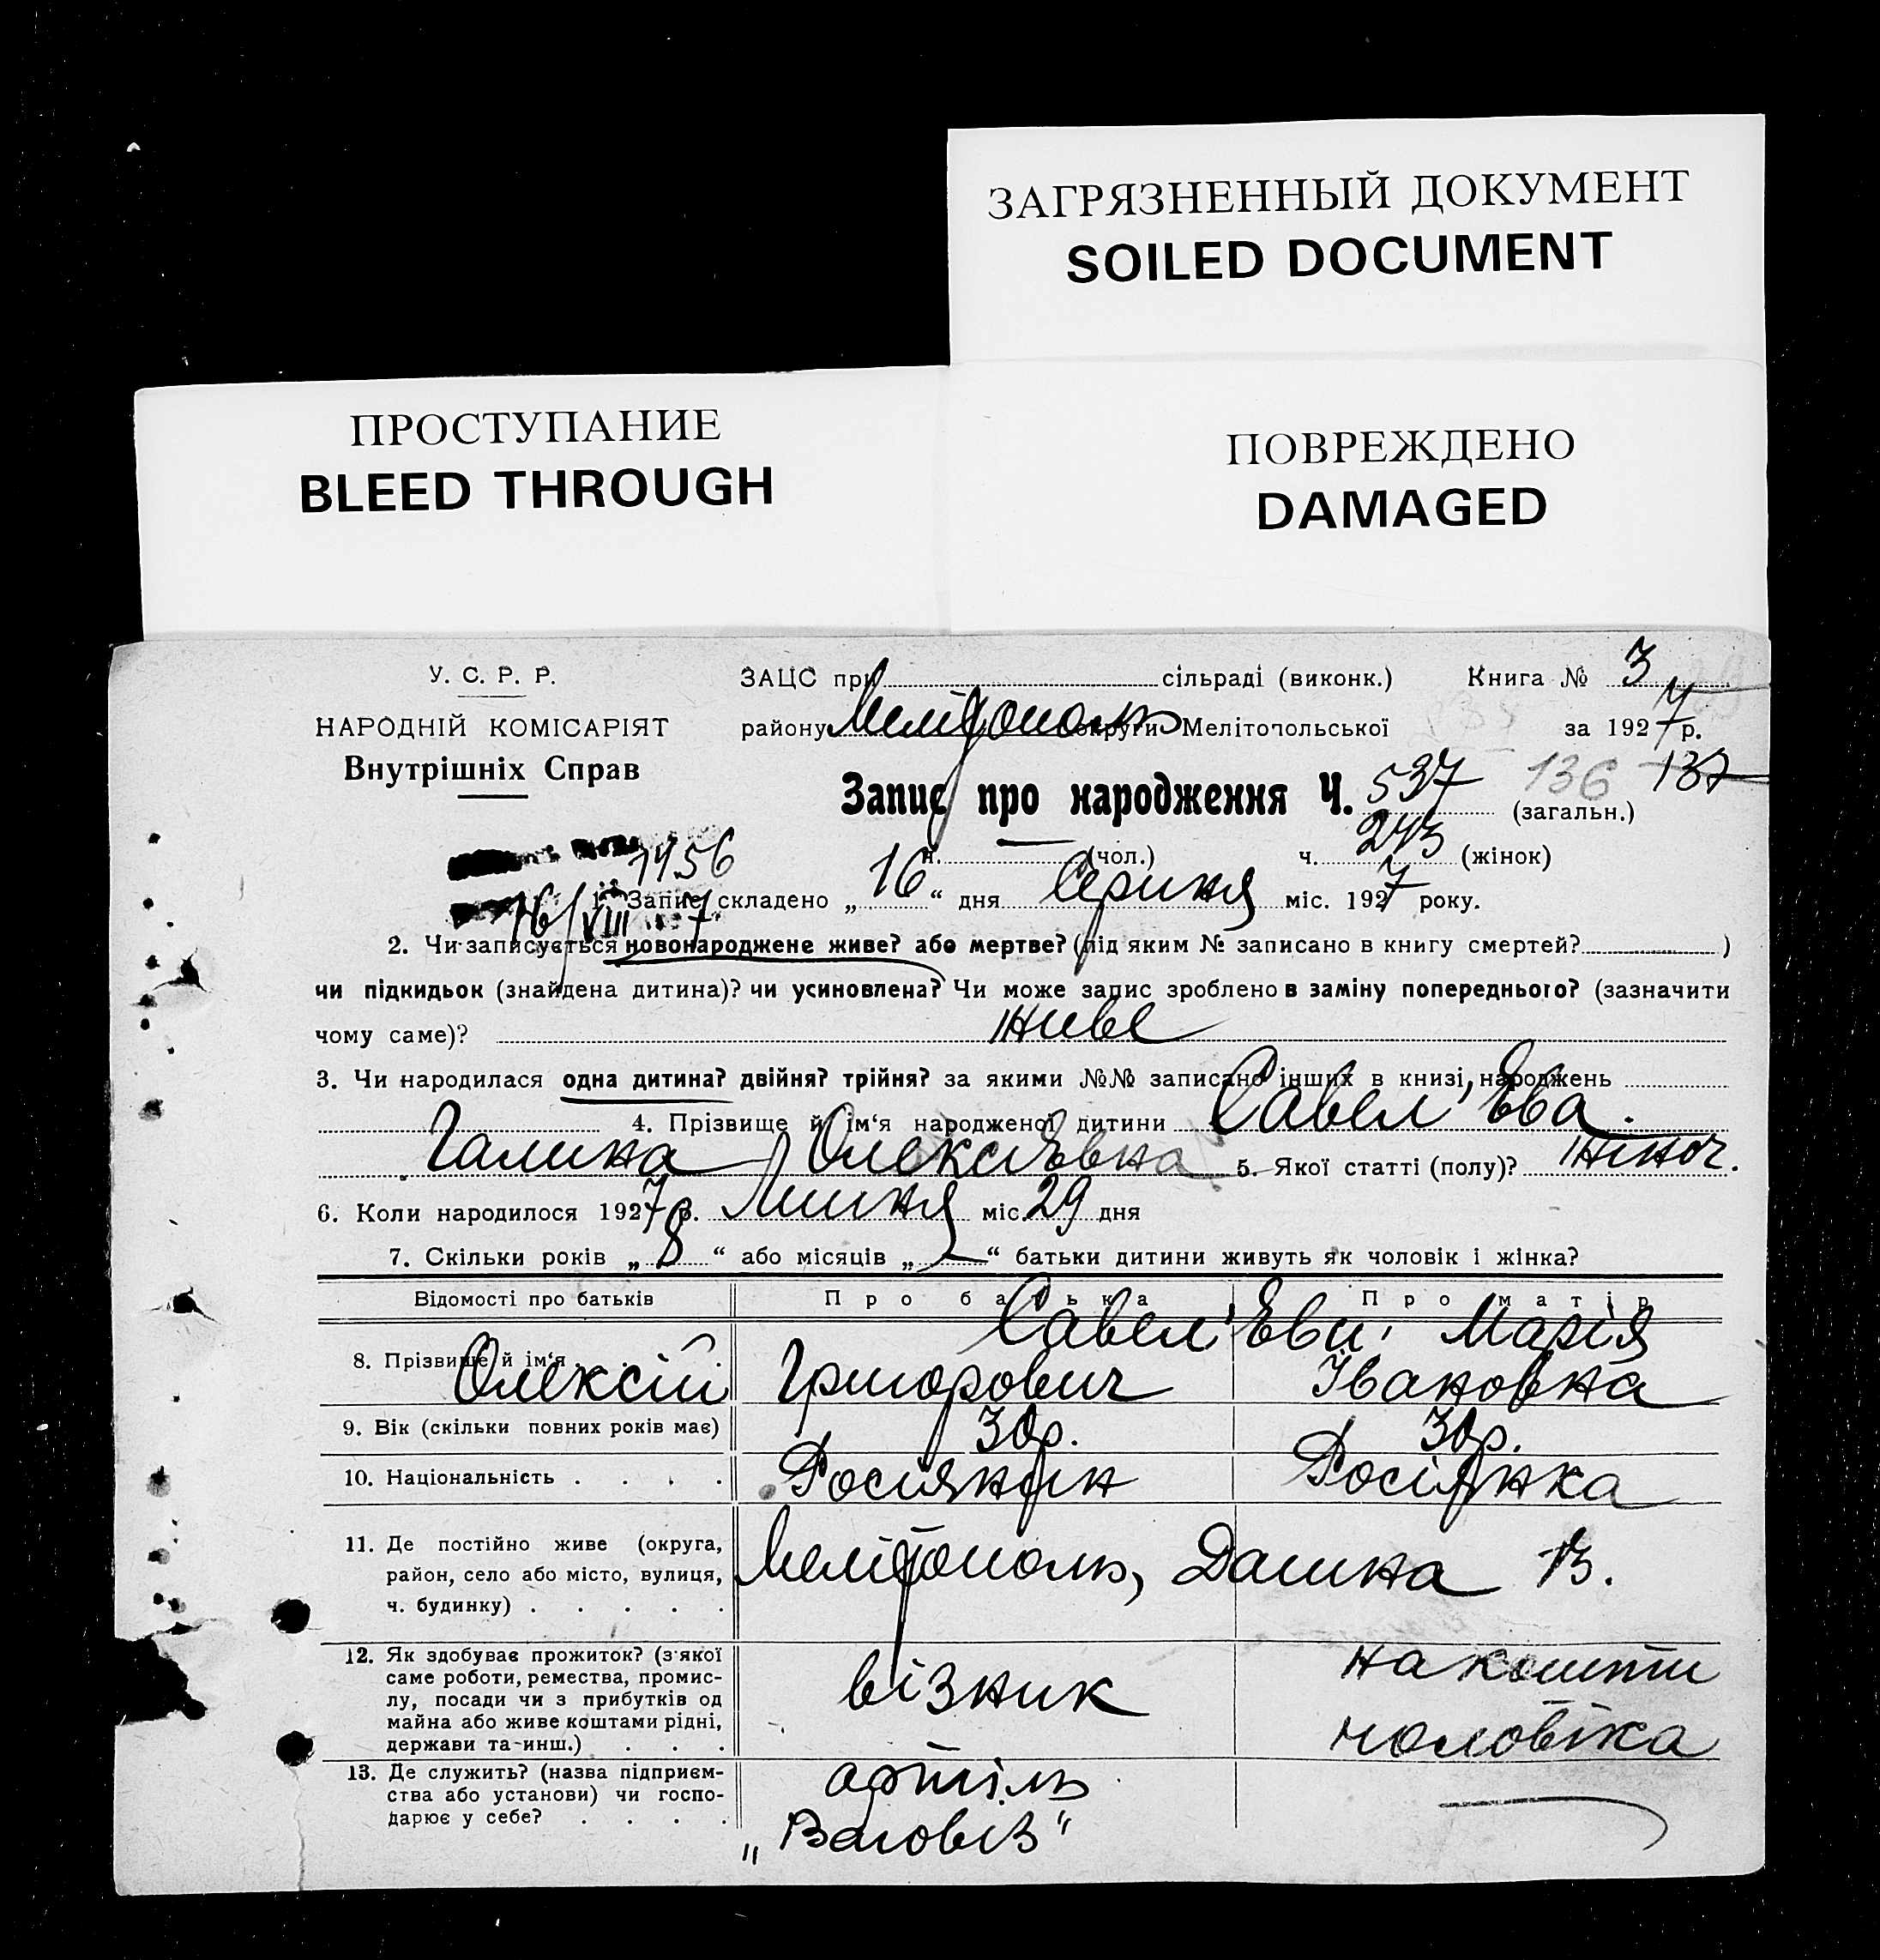 ЗАГРЯЗНЕННЫЙ ДОКУМЕНТ
SOILED DOCUMENT
ПРОСТУПАНИЕ
BLEED THROUGH
ПОВРЕЖДЕНО
DAMAGED
У. С. Р. Р.
НАРОДНІЙ КОМІСАРІЯТ
Внутрішніх Справ
ЗАЦС при сільраді (виконк.) Книга № 3
району Мелітополь округи Мелітопольської за 1927 р.
Запис про народження Ч. 537 (загальн.) 136 137
1456
ч. (чол.) ч. 243 (жінок)
16/VIII 7
1. Запис складено „16“ дня Серпня міс. 1927 року.
2. Чи записується новонароджене живе? або мертве? (під яким № записано в книгу смертей? )
чи підкидьок (знайдена дитина)? чи усиновлена? Чи може запис зроблено в заміну попереднього? (зазначити
чому саме)? живе
3. Чи народилася одна дитина? двійня? трійня? за якими №№ записано інших в книзі народжень
4. Прізвище й ім'я народженої дитини Савел'Ева.
Галина Олексіѣвна 5. Якої статті (полу)? жіноч.
6. Коли народилося 1927 р. Липня міс. 29 дня
7. Скільки років „8“ або місяців „ “ батьки дитини живуть як чоловік і жінка?
Відомості про батьків
Про батька
Про матір
Савел'Еви, Марія
8. Прізвище й ім'я . . . .
Олексій Григорович
Івановна
9. Вік (скільки повних років має) 30р. 30р.
10. Національність . . . . Росіянин Росіянка
11. Де постійно живе (округа,
район, село або місто, вулиця,
ч. будинку) . . . . .
Мелітополь, Дашна 13.
12. Як здобуває прожиток? (з'якої
саме роботи, ремества, промис-
лу, посади чи з прибутків од
майна або живе коштами рідні,
держави та-инш.) . . .
візник
на кошти
чоловіка
13. Де служить? (назва підприєм-
ства або установи) чи госпо-
дарює у себе? . . . .
артіль
„Ваговіз“